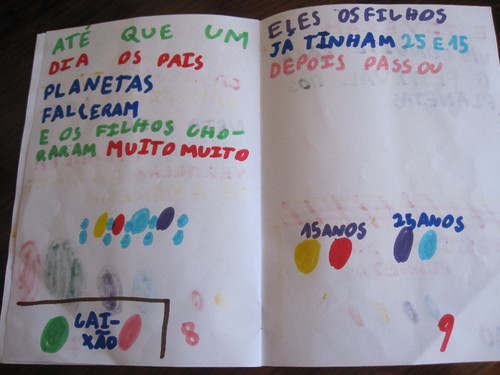 ATÉ QUE UM
DIA OS PAIS
PLANETAS
FALCERAM
E OS FILHOS CHO-
RARAM MUITO MUITO
CAI-
XÃO
8
ELES OS FILHOS
JÁ TINHAM 25 E 15
DEPOIS PASSOU
15 ANOS 25 ANOS
9